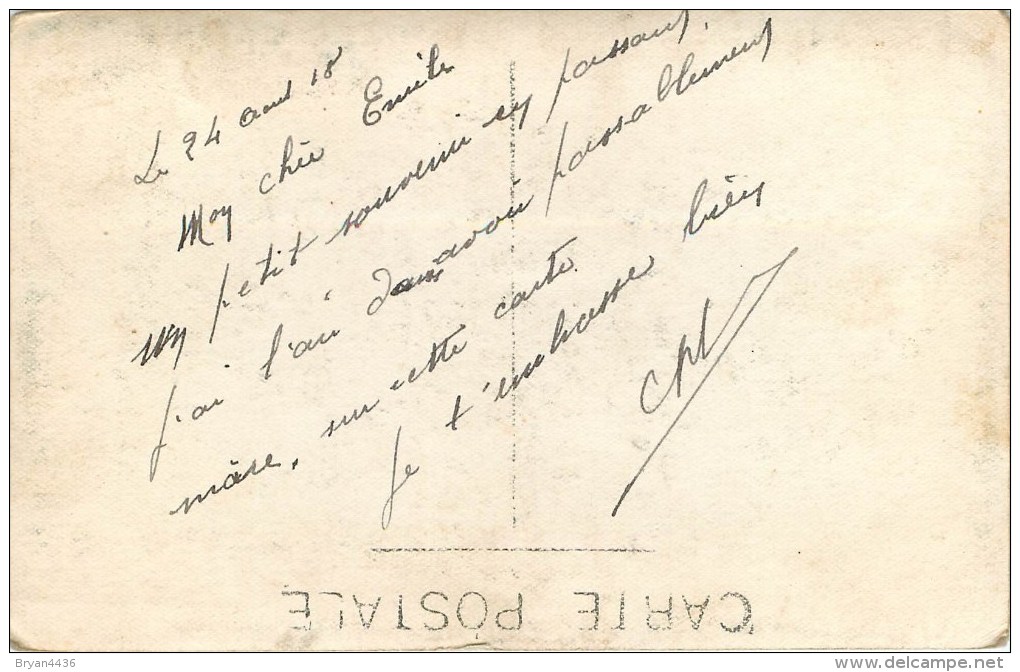 Le 24 aout 18
Mon chér Emile
Un petit souvenir en passant,
j'ai l'air d'en avoir passablement
mare, sur cette carte.
Je t'embrasse bien
CARTE POSTALE
Bryan4436
delcampe.net